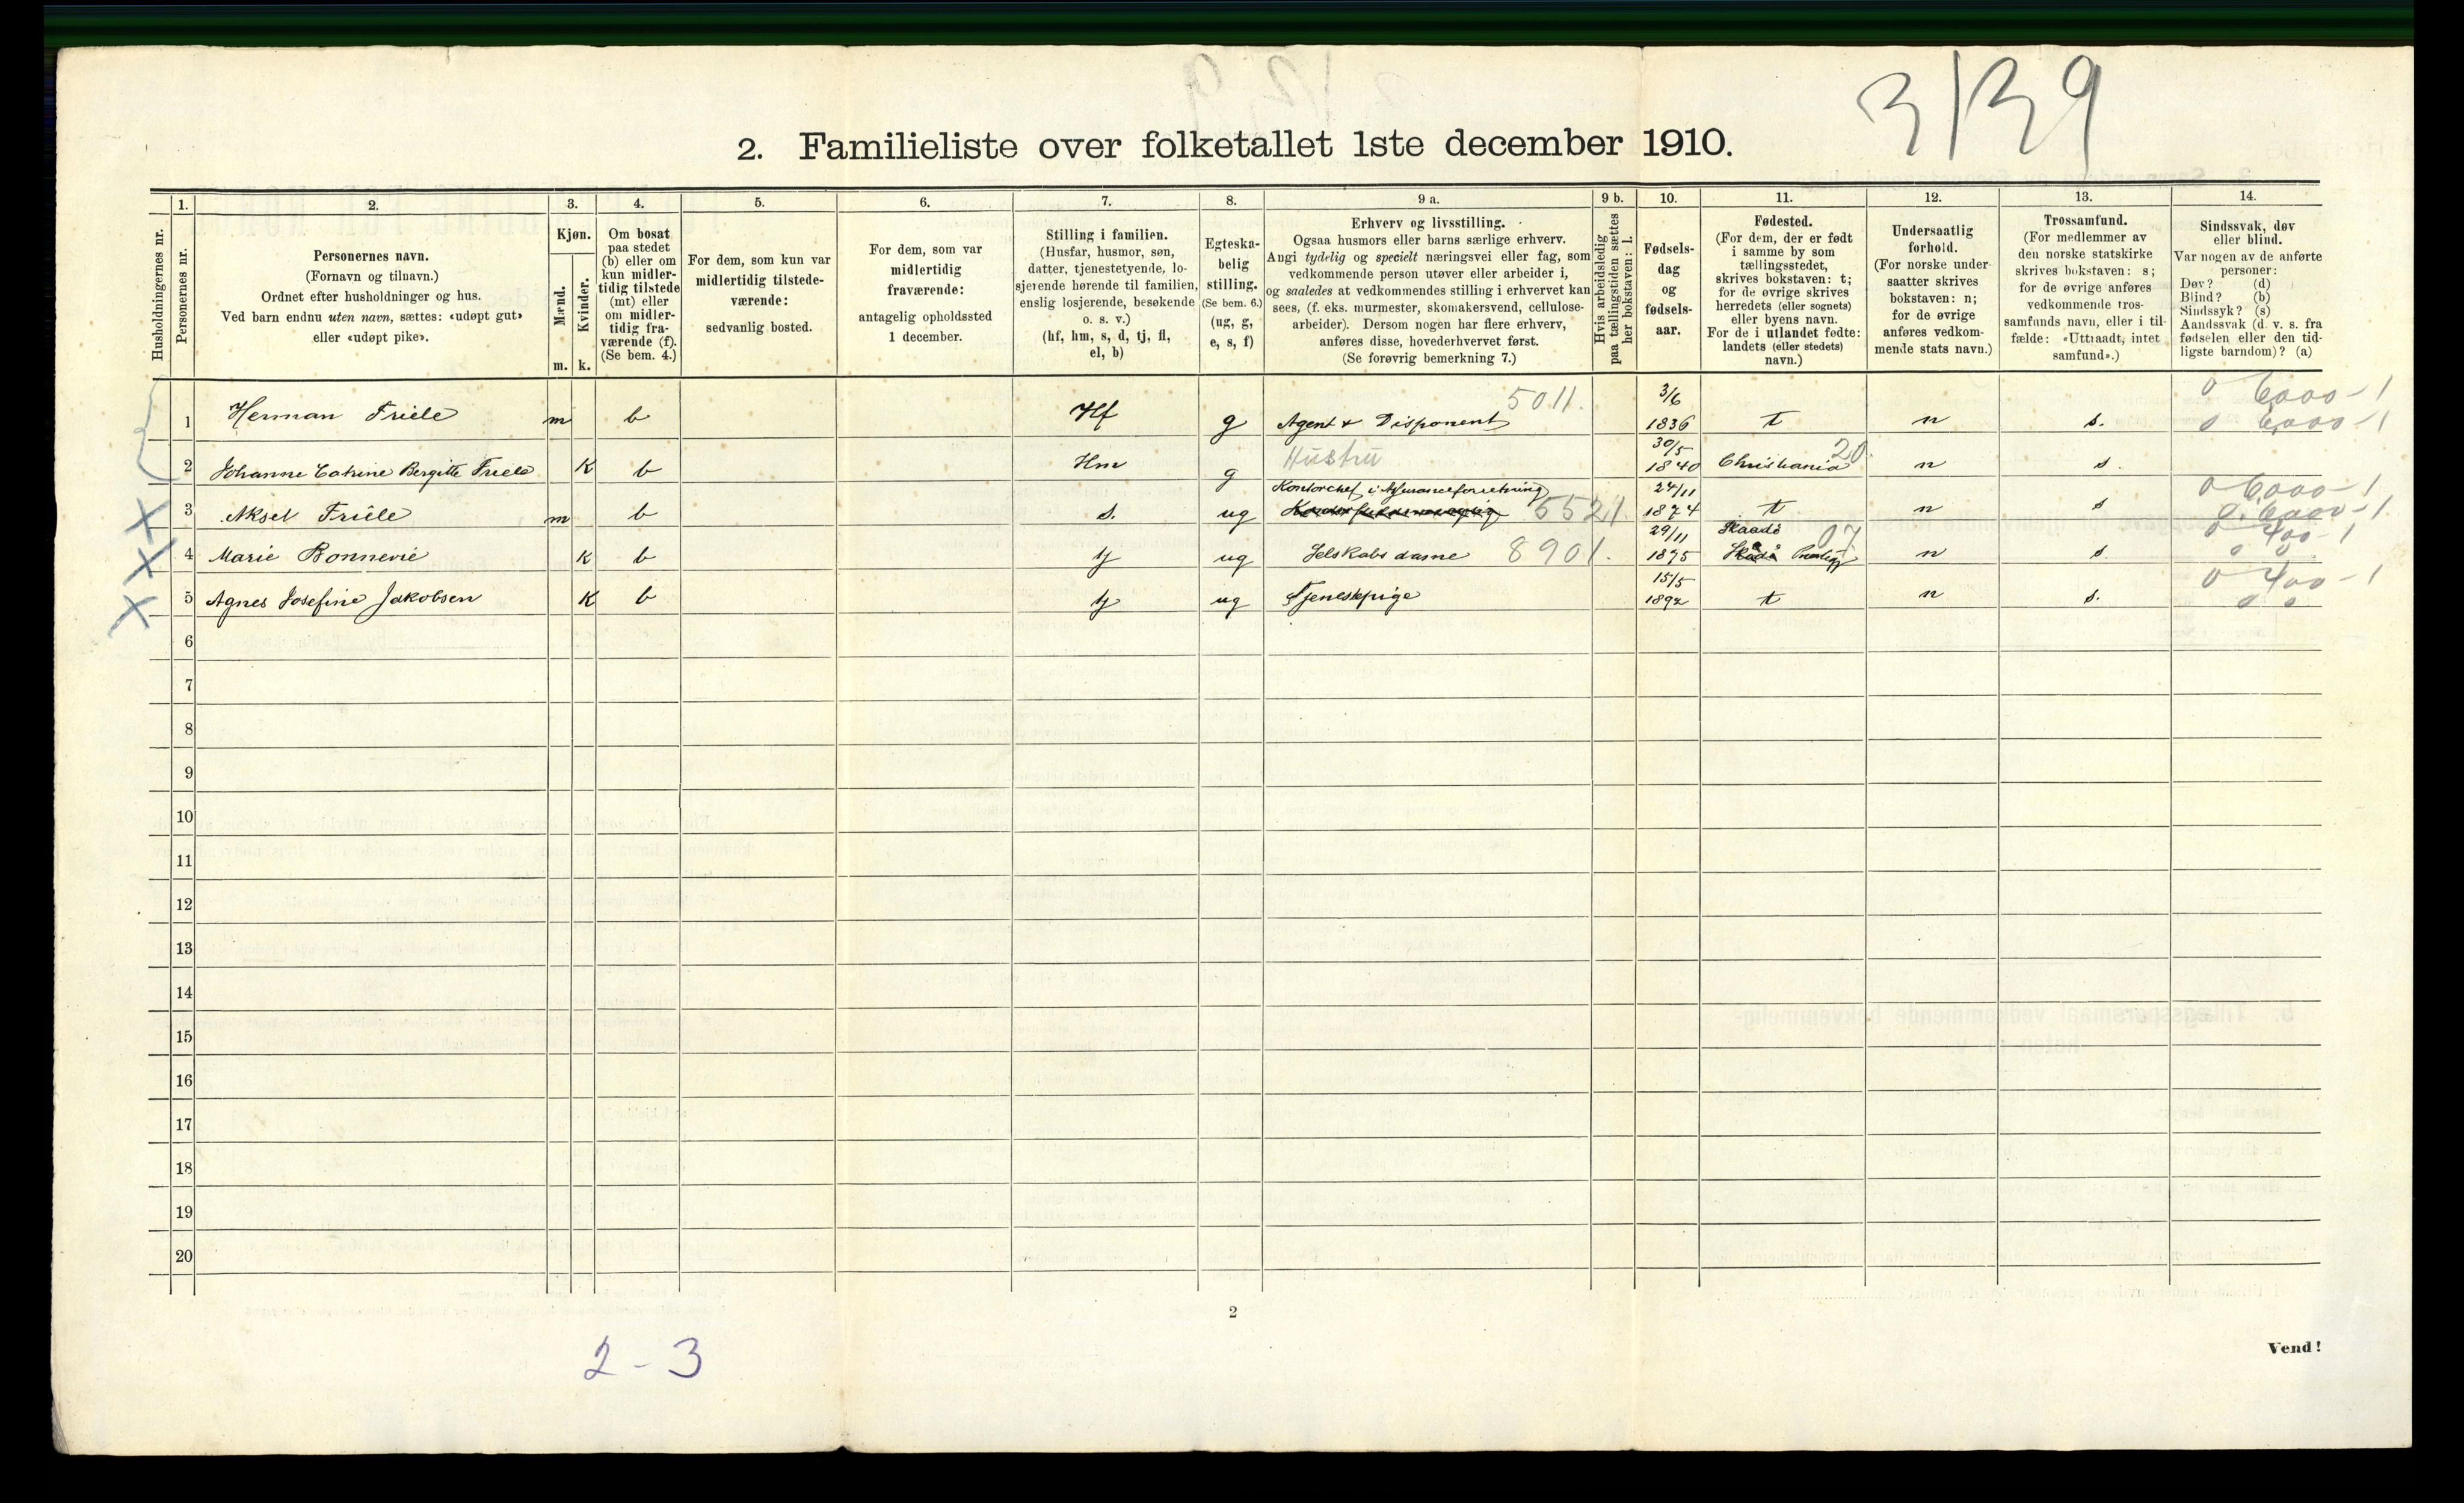 3139
2. Familieliste over folketallet 1ste december 1910.
Husholdningernes nr.
1. Personernes nr.
2. Personernes navn.
(Fornavn og tilnavn.)
Ordnet efter husholdninger og hus.
Ved barn endnu uten navn, sættes: «udøpt gut»
eller «udøpt pike».
3. Kjøn.
Mænd. m.
Kvinder. k.
4. Om bosat
paa stedet
(b) eller om
kun midler-
tidig tilstede
(mt) eller
om midler-
tidig fra-
værende (f).
(Se bem. 4.)
5. For dem, som kun var
midlertidig tilstede-
værende:
sedvanlig bosted.
6. For dem, som var
midlertidig
fraværende:
antagelig opholdssted
1 december.
7. Stilling i familien.
(Husfar, husmor, søn,
datter, tjenestetyende, lo-
sjerende hørende til familien,
enslig losjerende, besøkende
o. s. v.)
(hf, hm, s, d, tj, fl,
el, b)
8. Egteska-
belig
stilling.
(Se bem. 6.)
(ug, g,
e, s, f)
9 a. Erhverv og livsstilling.
Ogsaa husmors eller barns særlige erhverv.
Angi tydelig og specielt næringsvei eller fag, som
vedkommende person utøver eller arbeider i,
og saaledes at vedkommendes stilling i erhvervet kan
sees, (f. eks. murmester, skomakersvend, cellulose-
arbeider). Dersom nogen har flere erhverv,
anføres disse, hovederhvervet først.
(Se forøvrig bemerkning 7.)
9 b. Hvis arbeidsledig
paa tællingstiden sættes
her bokstaven: l.
10. Fødsels-
dag
og
fødsels-
aar.
11. Fødested.
(For dem, der er født
i samme by som
tællingsstedet,
skrives bokstaven: t;
for de øvrige skrives
herredets (eller sognets)
eller byens navn.
For de i utlandet fødte:
landets (eller stedets)
navn.)
12. Undersaatlig
forhold.
(For norske under-
saatter skrives
bokstaven: n;
for de øvrige
anføres vedkom-
mende stats navn.)
13. Trossamfund.
(For medlemmer av
den norske statskirke
skrives bokstaven: s;
for de øvrige anføres
vedkommende tros-
samfunds navn, eller i til-
fælde: «Uttraadt, intet
samfund».)
14. Sindssvak, døv
eller blind.
Var nogen av de anførte
personer:
Døv? (d)
Blind? (b)
Sindssyk? (s)
Aandssvak (d. v. s. fra
fødselen eller den tid-
ligste barndom)? (a)
1 Herman Friele m b Hf g Agent & Disponent 5011. 3/6 1836 t n s. 0 6000-1 0 6000-1
2 Johanne Catrine Bergitte Friele K b Hm g Hustru 30/5 1840 Christiania 20. n s.
3 Aksel Friele m b s. ug Kontorchef i Assuranceforretning 5521. 24/11 1874 t n s 0 6000-1 0 6000-1.
4 Marie Bonnevie K b tj ug Selskabsdame 8901. 29/11 1895 Skaadø 07 n s 0 400-1 0 0
5 Agnes Josefine Jakobsen K b tj ug Tjenestpige 15/5 1892 t n s. 0 400-1 0 0
6
7
8
9
10
11
12
13
14
15
16
17
18
19
20
2
2-3
Vend!